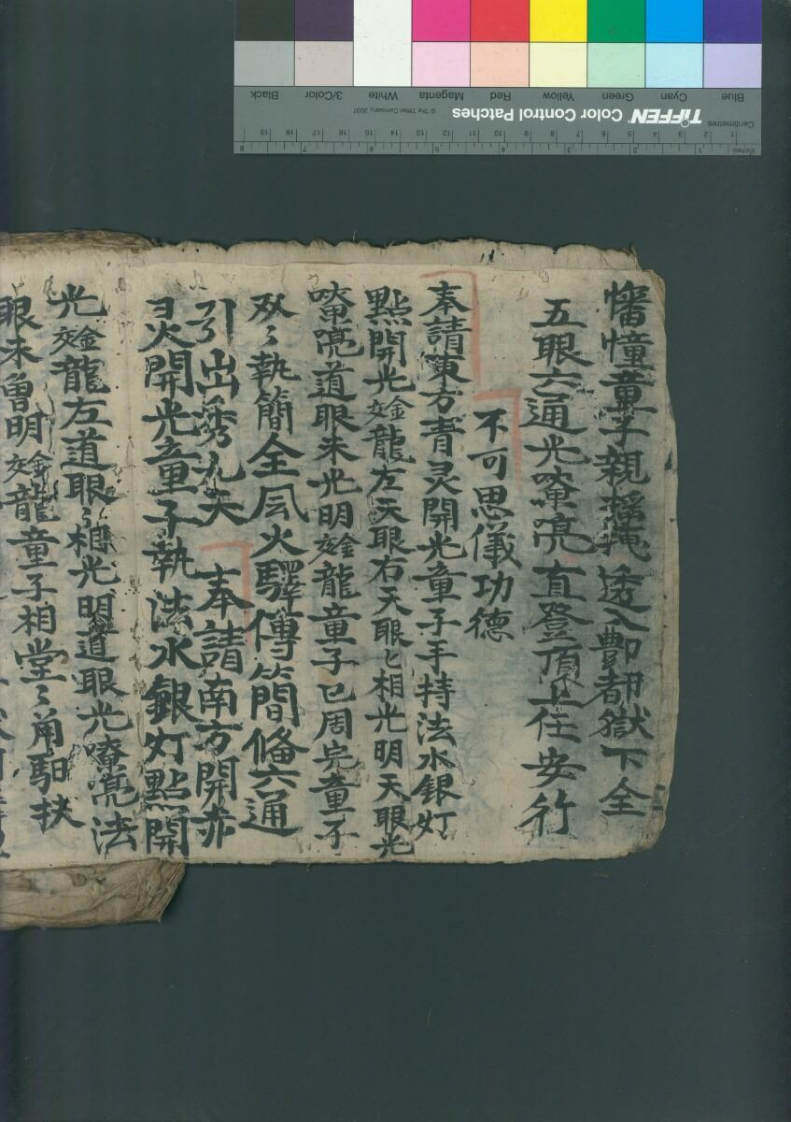 幡幢童子親搖拽透入酆都獄下全
五眼六通光嘹亮直登頂上任安行
不可思儀功德
奉請東方青灵開光童子手持法水銀灯
點開光交金龍左天眼右天眼〻相光明天眼光
嘹亮道眼未光明交金龍童子已周完童子
双〻執簡全凨火驛傳簡脩六通
引出秀九天 奉請南方開赤
灵開光童子執法水銀灯點開
光交金龍左道眼〻相光明道眼光嘹亮法
眼未曾明交金龍童子相堂〻角馹扶
Blue
Cyan
Green
Yellow
Red
Magenta
White
3/Color
Black
Centimetres
TIFFEN Color Control Patches
© The Tiffen Company, 2007
Inches